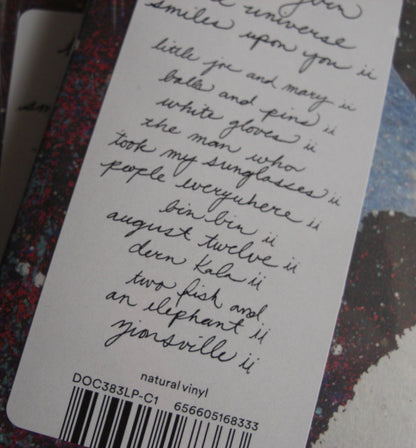 universe
smiles upon you ii
little joe and mary ii
balls and pins ii
white gloves ii
the man who
took my sunglasses ii
people everywhere ii
bin bin ii
august twelve ii
dern kala ii
two fish and
an elephant ii
zionsville ii
natural vinyl
DOC383LP-C1 656605168333